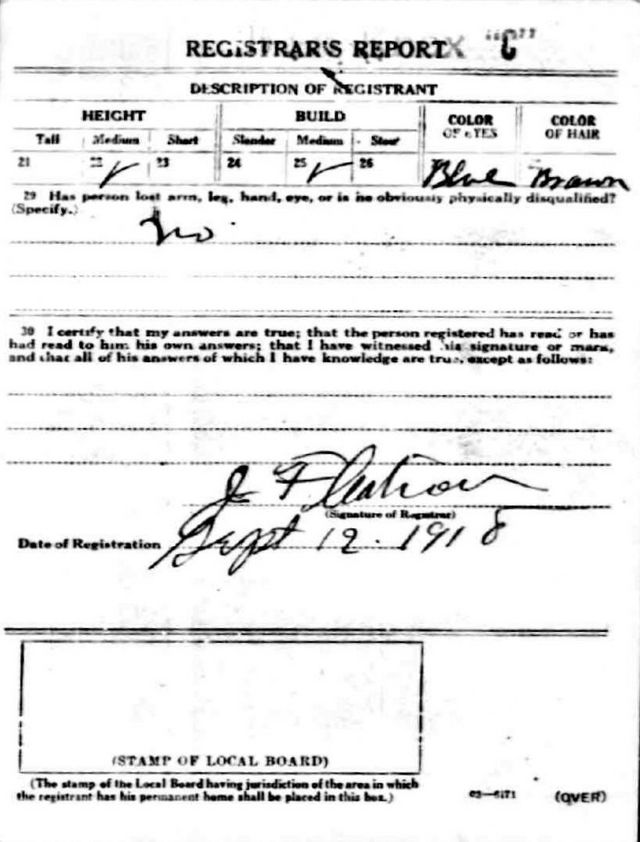 REGISTRAR'S REPORT
DESCRIPTION OF REGISTRANT
HEIGHT BUILD COLOR OF EYES COLOR OF HAIR
Tall Medium Short Slender Medium Stout
21 22 ✓ 23 24 25 ✓ 26 Blue Brown
29 Has person lost arm, leg, hand, eye, or is he obviously physically disqualified?
(Specify.)
No
30 I certify that my answers are true; that the person registered has read or has
had read to him his own answers; that I have witnessed his signature or mark,
and that all of his answers of which I have knowledge are true, except as follows:
J
(Signature of Registrar)
Date of Registration Sept 12. 1918
(STAMP OF LOCAL BOARD)
(The stamp of the Local Board having jurisdiction of the area in which
the registrant has his permanent home shall be placed in this box.)
03—6171 (OVER)